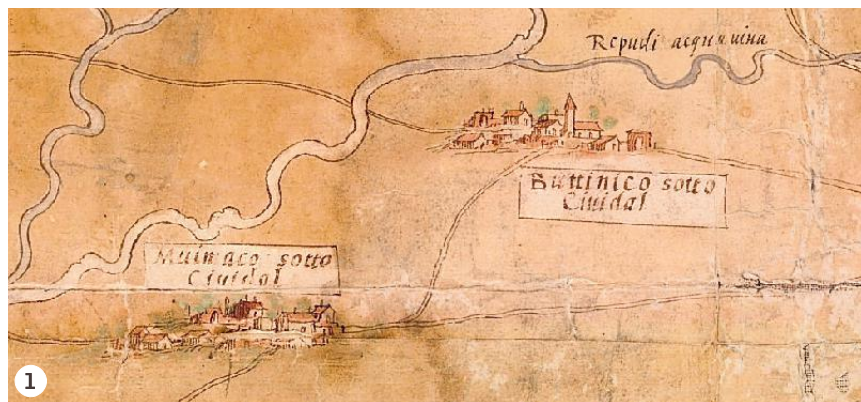 Repudi acqua uiua
Buttinico sotto
Ciuidal
Muimaco sotto
Ciuidal
1